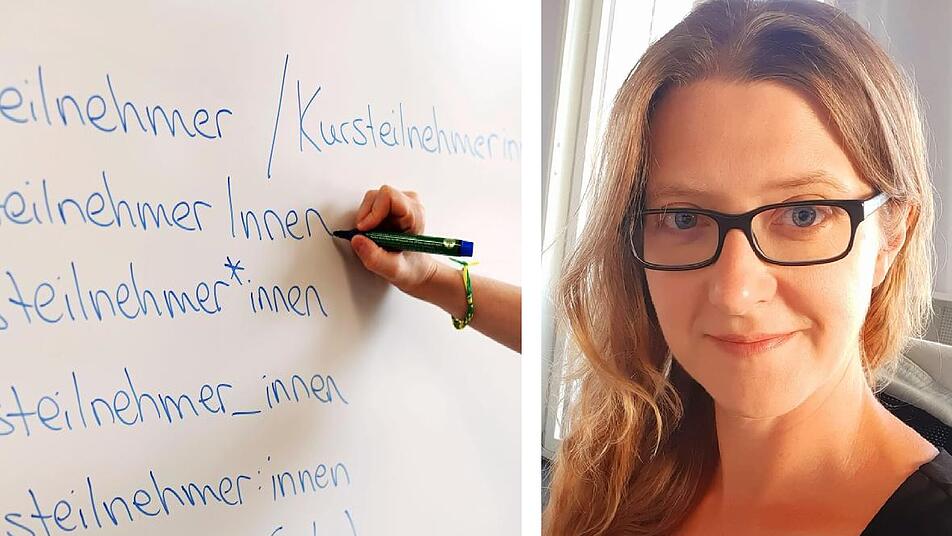 eilnehmer /Kursteilnehmerin
teilnehmer Innen
steilnehmer*innen
steilnehmer_innen
steilnehmer:innen